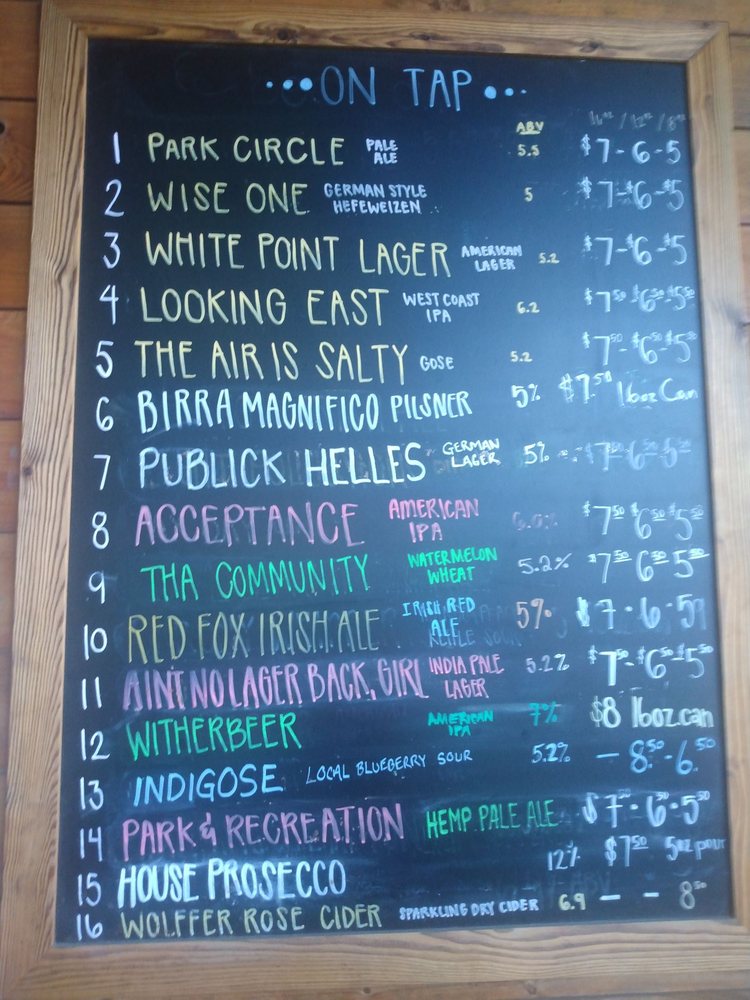 •••ON TAP•••
ABV 16oz / 12oz / 8oz
1 PARK CIRCLE PALE ALE 5.5 $7-6-5
2 WISE ONE GERMAN STYLE HEFEWEIZEN 5 $7-$6-$5
3 WHITE POINT LAGER AMERICAN LAGER 5.2 $7-$6-$5
4 LOOKING EAST WEST COAST IPA 6.2 $750 $650 $550
5 THE AIR IS SALTY GOSE 5.2 $750-$650-$550
6 BIRRA MAGNIFICO PILSNER 5% $7.50 16oz Can
7 PUBLICK HELLES GERMAN LAGER 5% $750-650-550
8 ACCEPTANCE AMERICAN IPA $750 $650 $550
9 THA COMMUNITY WATERMELON WHEAT 5.2% $750 650 550
10 RED FOX IRISH ALE IRISH RED ALE 5% $7-6-5
11 AINT NO LAGER BACK, GIRL INDIA PALE LAGER 5.2% $750-$650-$550
12 WITHERBEER AMERICAN IPA 7% $8 16oz.can
13 INDIGOSE LOCAL BLUEBERRY SOUR 5.2% - 8.50-6.50
14 PARK & RECREATION HEMP PALE ALE $750-650-550
15 HOUSE PROSECCO 12% $750 5oz pour
16 WOLFFER ROSE CIDER SPARKLING DRY CIDER 6.9 - - 850